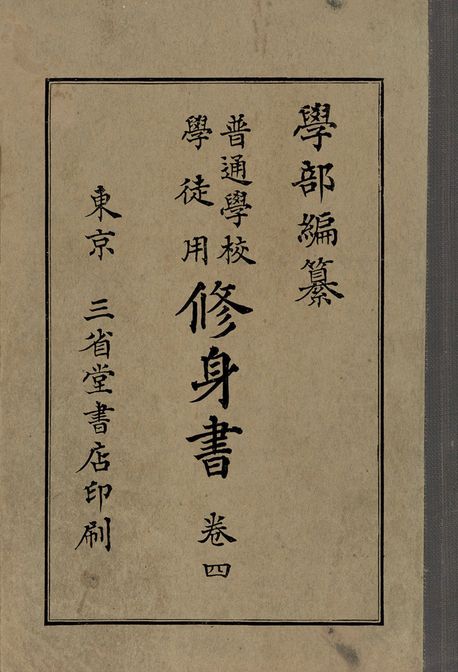 學部編纂
普通學校
學徒用
修身書 卷四
東京 三省堂書店印刷